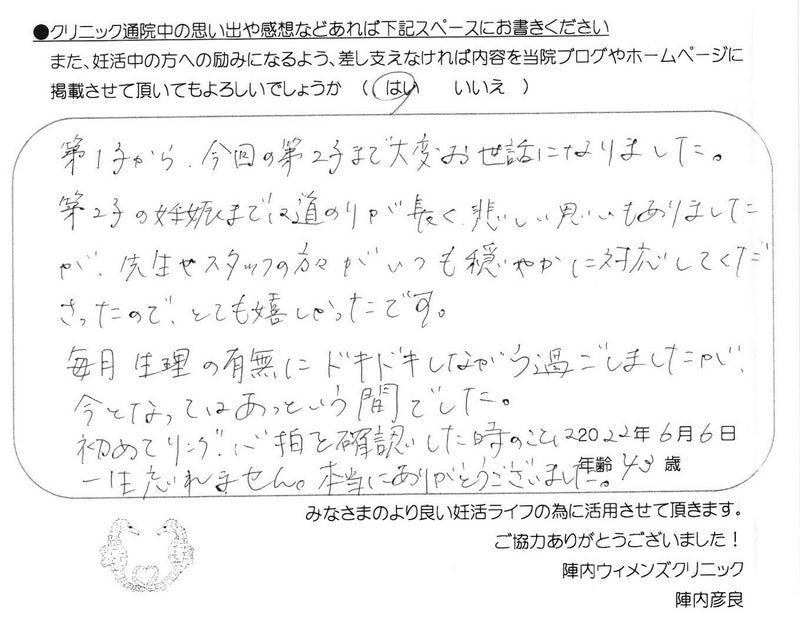 ●クリニック通院中の思い出や感想などあれば下記スペースにお書きください
また、妊活中の方への励みになるよう、差し支えなければ内容を当院ブログやホームページに
掲載させて頂いてもよろしいでしょうか （ はい　いいえ ）
第1子から、今回の第2子まで大変お世話になりました。
第2子の妊娠までは道のりが長く、悲しい思いもありました
が、先生やスタッフの方々がいつも穏やかに対応してくだ
さったので、とても嬉しかったです。
毎月生理の有無にドキドキしながら過ごしましたが、
今となってはあっという間でした。
初めてリング、心拍を確認した時のことは
2022年6月6日
一生忘れません。本当にありがとうございました。
年齢 43 歳
みなさまのより良い妊活ライフの為に活用させて頂きます。
ご協力ありがとうございました！
陣内ウィメンズクリニック
陣内彦良